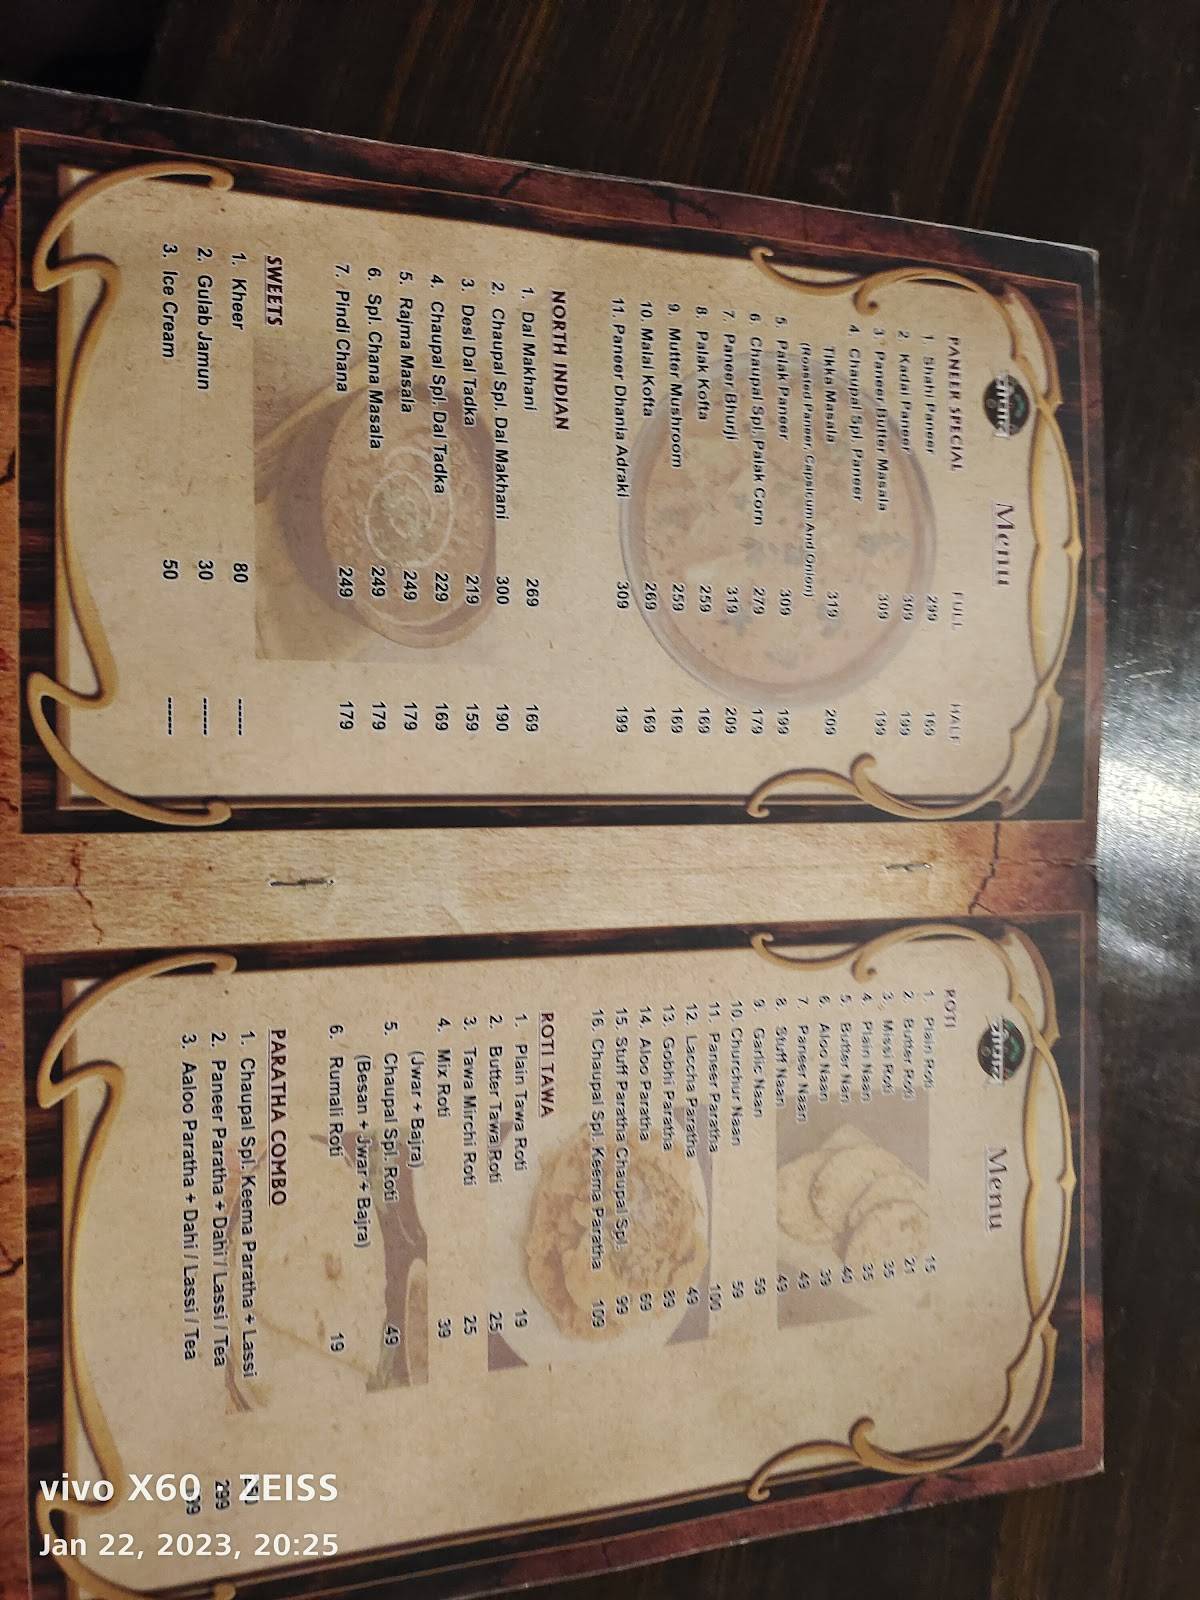 चौपाल
Menu
PANEER SPECIAL FULL HALF
1. Shahi Paneer 299 169
2. Kadai Paneer 309 199
3. Paneer Butter Masala 309 199
4. Chaupal Spl. Paneer
Tikka Masala 319 209
(Roasted Paneer, Capsicum And Onion)
5. Palak Paneer 309 199
6. Chaupal Spl. Palak Corn 279 179
7. Paneer Bhurji 319 209
8. Palak Kofta 259 169
9. Mutter Mushroom 259 169
10. Malai Kofta 269 169
11. Paneer Dhania Adraki 309 199
NORTH INDIAN
1. Dal Makhani 269 169
2. Chaupal Spl. Dal Makhani 300 190
3. Desi Dal Tadka 219 159
4. Chaupal Spl. Dal Tadka 229 169
5. Rajma Masala 249 179
6. Spl. Chana Masala 249 179
7. Pindi Chana 249 179
SWEETS
1. Kheer 80 ------
2. Gulab Jamun 30 ------
3. Ice Cream 50 ------
चौपाल
Menu
ROTI
1. Plain Roti 15
2. Butter Roti 21
3. Missi Roti 35
4. Plain Naan 35
5. Butter Nan 40
6. Aloo Naan 39
7. Paneer Naan 49
8. Stuff Naan 49
9. Garlic Naan 59
10. Churchur Naan 59
11. Paneer Paratha 100
12. Laccha Paratha 49
13. Gobhi Paratha
14. Aloo Paratha 69
15. Stuff Paratha Chaupal Spl. 99
16. Chaupal Spl. Keema Paratha 109
ROTI TAWA
1. Plain Tawa Roti 19
2. Butter Tawa Roti 25
3. Tawa Mirchi Roti 25
4. Mix Roti 39
(Jwar + Bajra)
5. Chaupal Spl. Roti 49
(Besan + Jwar + Bajra)
6. Rumali Roti 19
PARATHA COMBO
1. Chaupal Spl. Keema Paratha + Lassi
2. Paneer Paratha + Dahi / Lassi / Tea 299
3. Aaloo Paratha + Dahi / Lassi / Tea
vivo X60 ZEISS
Jan 22, 2023, 20:25